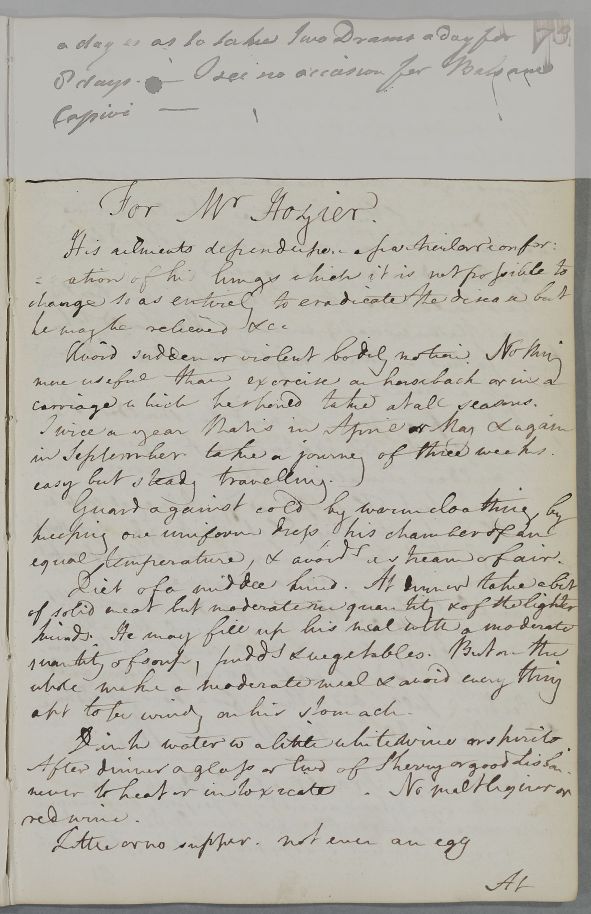 a day so as to take Two Drams a day for
8 days. — I see no occasion for Balsam
Capivi —
73
For Mr Hozier.
His ailments depend upon a particular confor:
: ation of his lungs which it is not possible to
change so as entirely to eradicate the disease but
he may be relieved &c.
Avoid sudden or violent bodily motion. Nothing
more useful than exercise on horseback or in a
carriage which he should take at all seasons.
Twice a year that is in April or May & again
in September take a journey of three weeks.
easy but steady travelling.
Guard against cold by warm cloathing, by
keeping one uniform dress, his chamber of an
equal temperature, & avoids a stream of air.
Diet of a middle kind. At dinner take a bit
of solid meat but moderate in quantity & of the lighter
kinds. He may fill up his meal with a moderate
quantity of soup, pudds & vegetables. But on the
whole make a moderate meal & avoid every thing
apt to be windy on his stomach.
Drink water w a little white wine or spirits
After dinner a glass or two of Sherry or good Lisbn.
never to heat or intoxicate. No malt liquor or
red wine.
Little or no supper. not even an egg
At